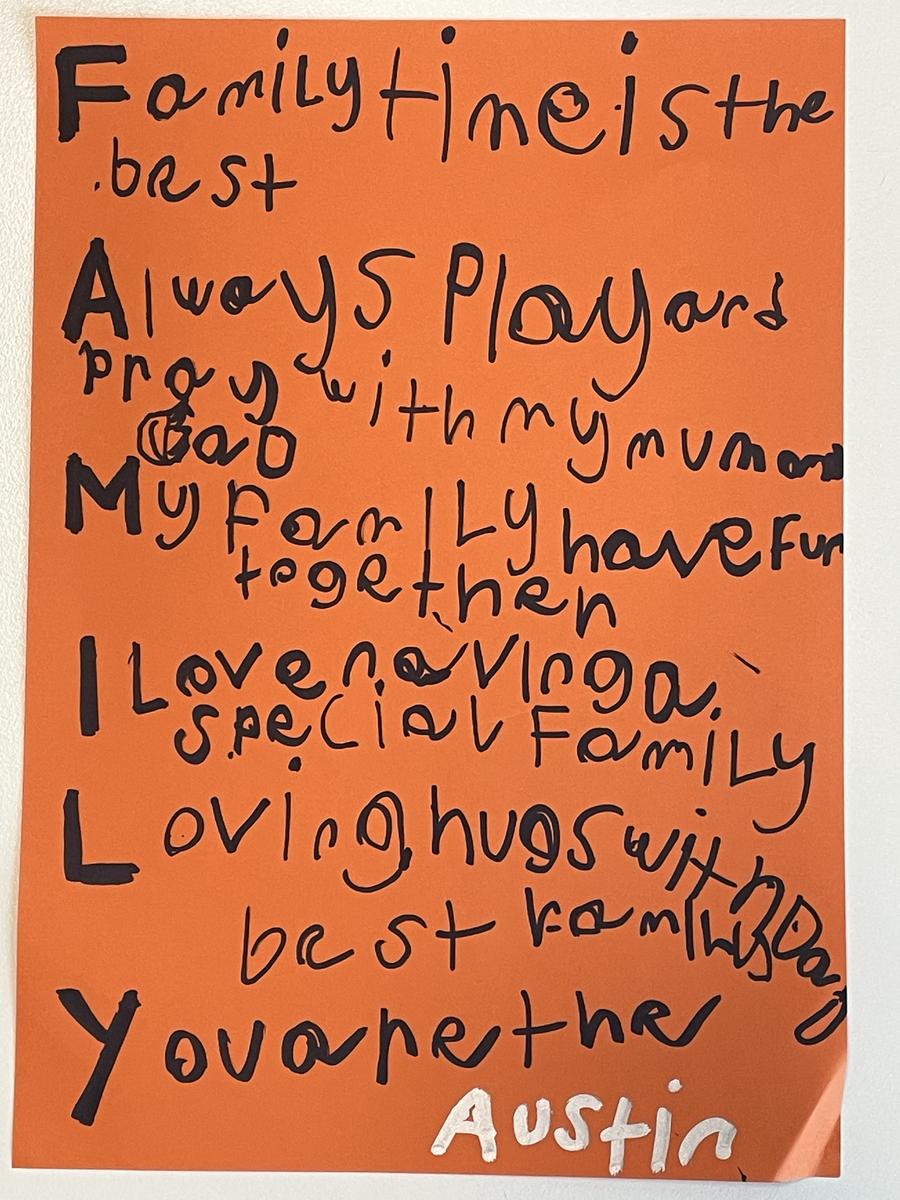 Family time is the
best
Always Play and
pray with my mum and
Dad
My Family have Fun
together
I Love having a
special Family
Loving hugs with Dad
best Family
You are the
Austin